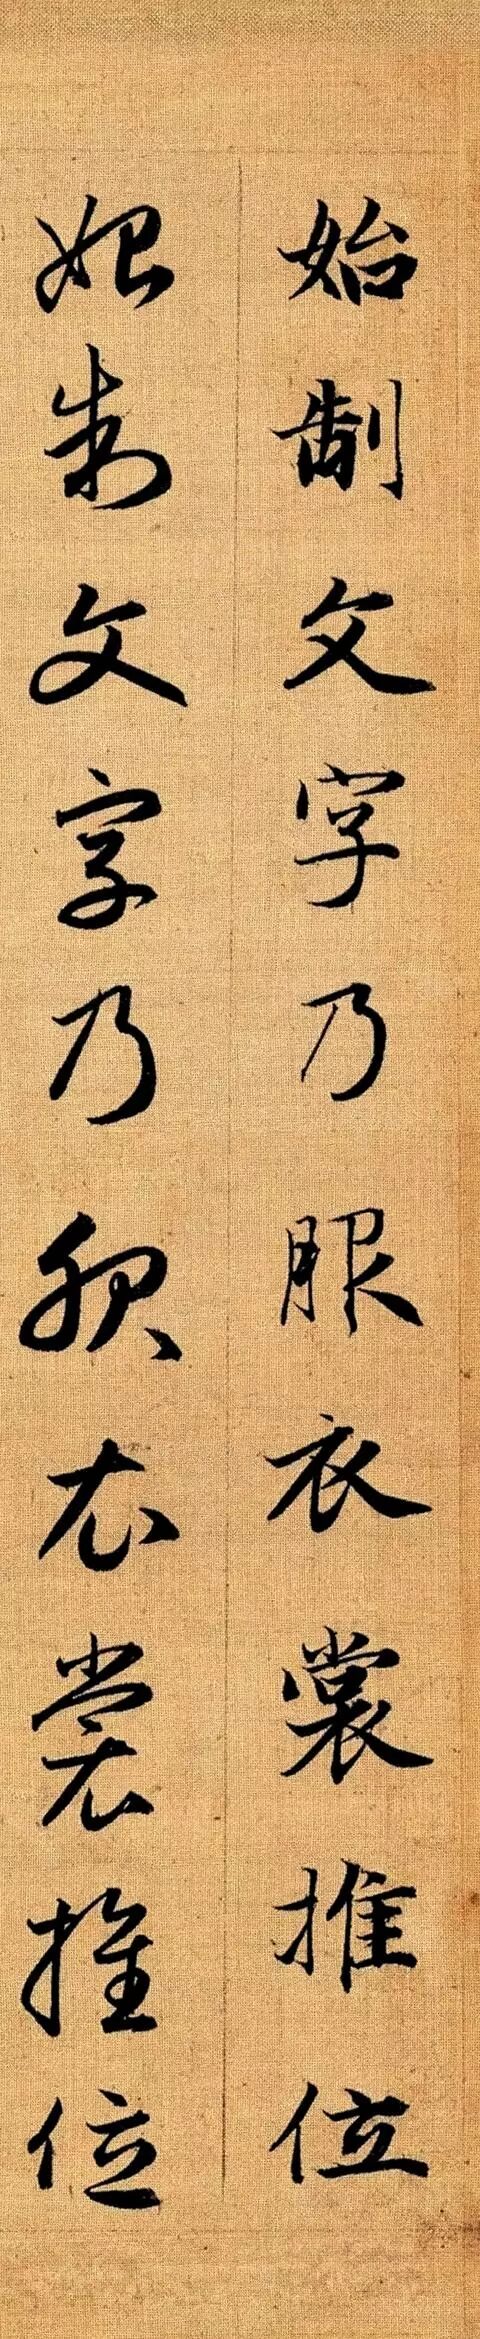 始制文字乃服衣裳推位
始制文字乃服衣裳推位